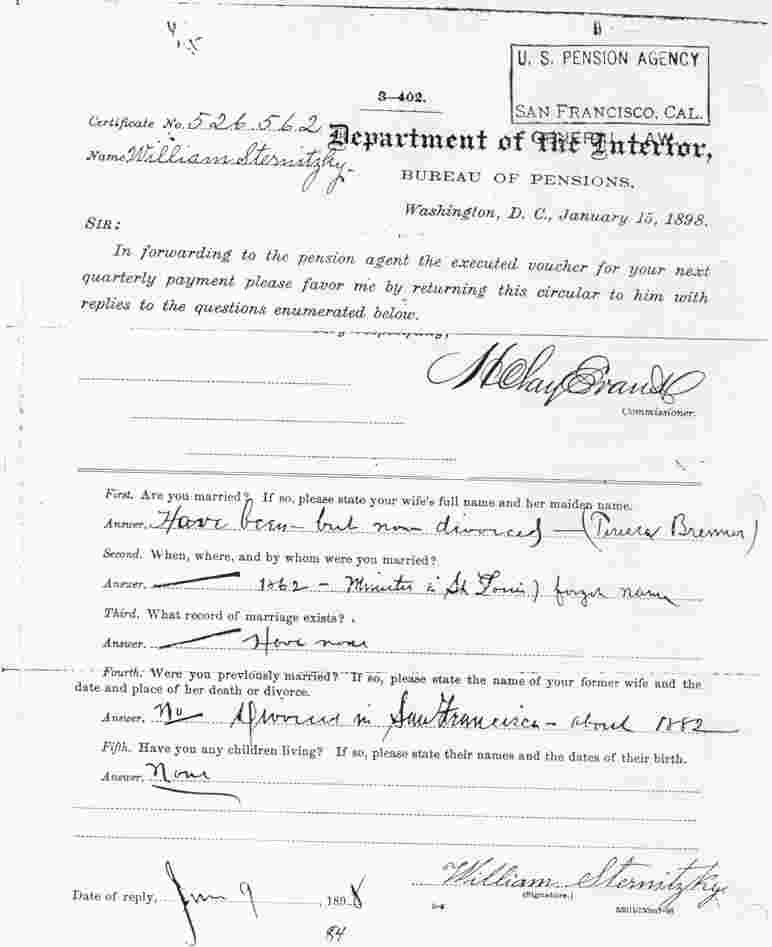 U. S. PENSION AGENCY
SAN FRANCISCO, CAL.
GENERAL LAW
3-402.
Certificate No. 526.562
Department of the Interior,
Name William Sternitzky.
BUREAU OF PENSIONS,
Washington, D. C., January 15, 1898.
SIR:
In forwarding to the pension agent the executed voucher for your next
quarterly payment please favor me by returning this circular to him with
replies to the questions enumerated below.
H Clay Evans
Commissioner.
First. Are you married? If so, please state your wife's full name and her maiden name.
Answer. Have been - but now divorced - (Teresa Bremer)
Second. When, where, and by whom were you married?
Answer. 1862 - Minister in St Louis) forgot name
Third. What record of marriage exists?
Answer. Have none
Fourth. Were you previously married? If so, please state the name of your former wife and the
date and place of her death or divorce.
Answer. No Divorced in San Francisco - about 1882
Fifth. Have you any children living? If so, please state their names and the dates of their birth.
Answer. None
William Sternitzky.
(Signature.)
Date of reply, 9, 1898
84